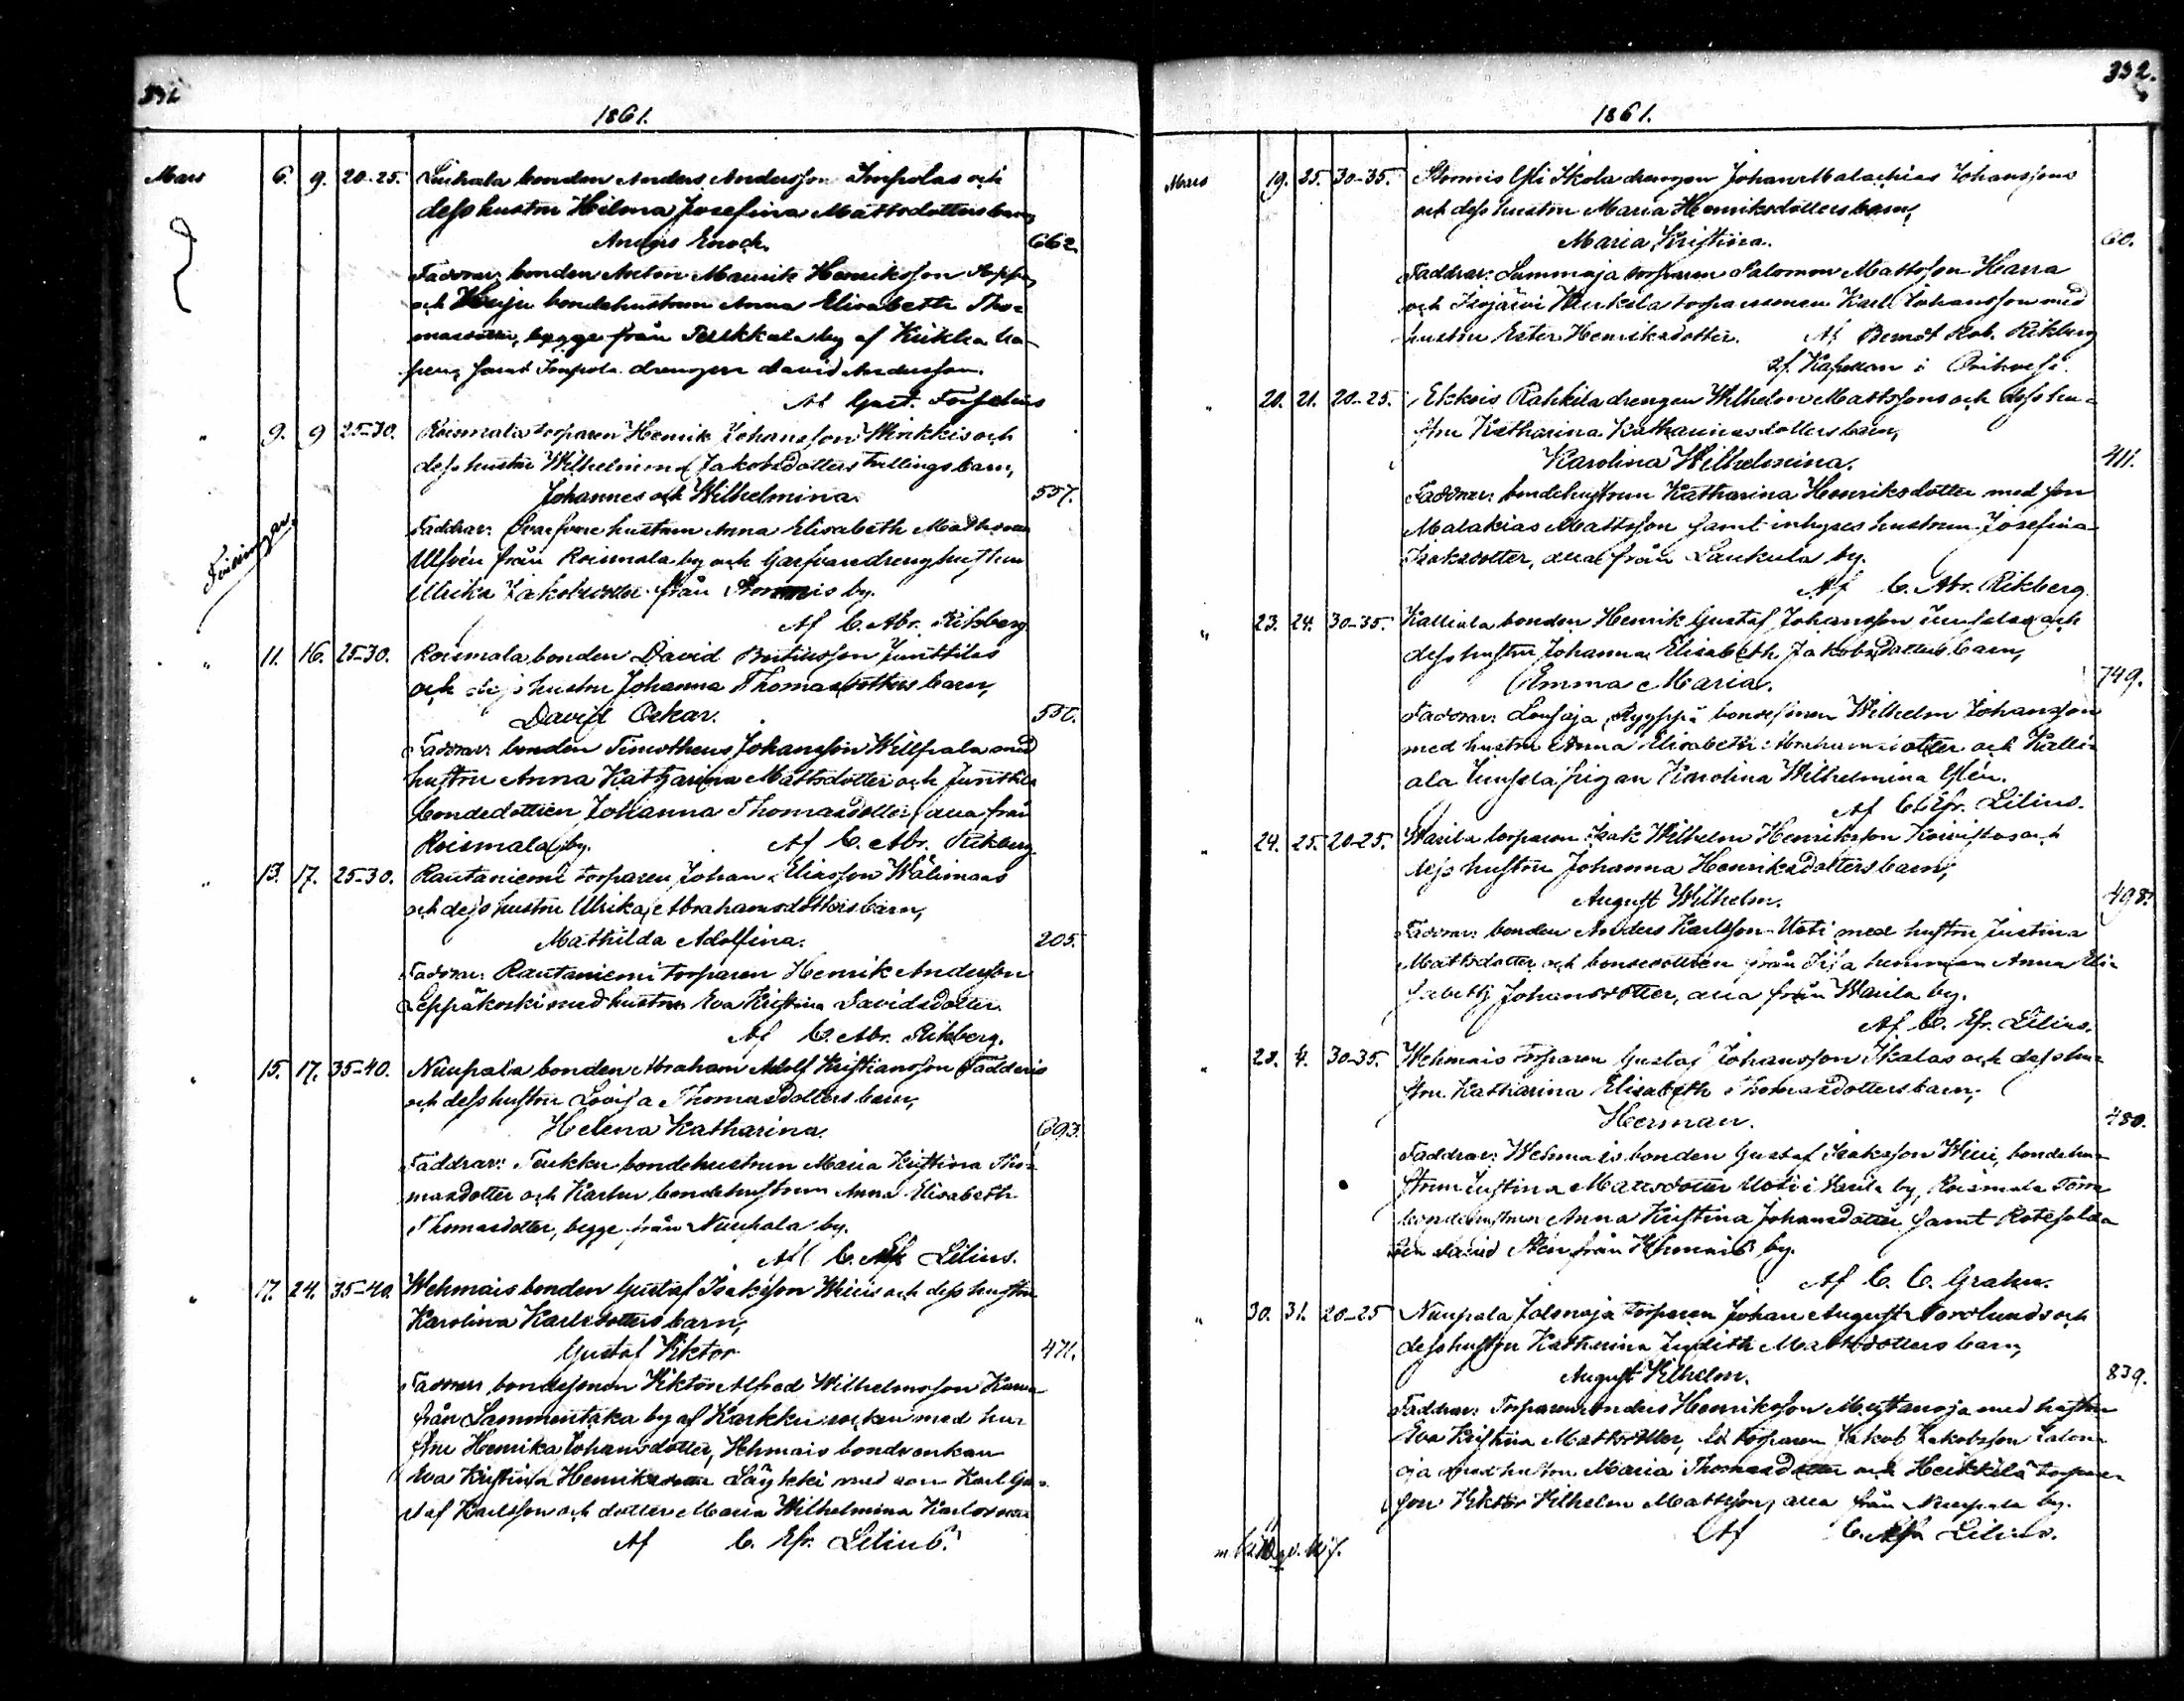 1861.
Mars 6. 9. 20-25. bonden Anders Andersson Impolas och
dess hustru Hilma Josefina Mattsdotters barn,
Anders Enoch. 662
Faddrar: bonden Anton Maurits Henriksson
och bondehustrun Anna Elisabeth Tho-
masdotter, begge från by af
samt Impola drengen David Andersson.
Af Gust. Forselius
" 9. 9 25-30. Roismala torparen Henrik Johansson och
dess hustru Wilhelmina Jakobsdotters tvillingsbarn,
Johannes och Wilhelmina. 557.
Tvillingar.
Faddrar: hustrun Anna Elisabeth
från Roismala by och Garfvaredrengshustrun
Ulrika Jakobsdotter från Stormis by.
Af C. Abr. Rikberg
" 11. 16. 25-30. Roismala bonden David Junttilas
och dess hustru Johanna Thomasdotters barn,
David Oskar. 550.
Faddrar: bonden Timotheus Johansson Willpala med
hustru Anna Katharina Mattsdotter och Junttila
bondedottren Johanna Thomasdotter, alla från
Roismala by. Af C. Abr. Rikberg
" 13. 17. 25-30. Rautaniemi torparen Johan Eliasson Wälimaas
och dess hustru Ulrika Abrahamsdotters barn,
Mathilda Adolfina. 205.
Faddrar: Rautaniemi torparen Henrik Andersson
Leppäkoski med hustru Eva Kristina Davidsdotter.
Af C. Abr. Rikberg.
" 15. 17. 35-40. Nuupala bonden Abraham Adolf Kristiansson
och dess hustru Lovisa Thomasdotters barn,
Helena Katharina. 693
Faddrar: bondehustrun Maria Kristina Tho-
masdotter och bondehustrun Anna Elisabeth
Thomasdotter, begge från Nuupala by.
Af C. Efr. Lilius.
" 17. 24. 35-40. Wehmais bonden Gustaf Isaksson och dess hustru
Karolina Karlsdotters barn,
Gustaf Viktor 471.
Faddrar: bondesonen Viktor Alfred Wilhelmsson
från Sammentaka by af Karkku socken med hu-
stru Henrika Johansdotter, Wehmais bondenkan
Eva Kristina Henriksdotter med son Karl Gu-
staf Karlsson och dotter Maria Wilhelmina Karlsdotter
Af C. Efr. Lilius.
332.
1861.
Mars 19. 25. 30-35. Stormis drengen Johan Malachias Johanssons
och dess hustru Maria Henriksdotters barn,
Maria Kristina. 60.
Faddrar: torparen Salomon Mattsson
och torparesonen Karl Johansson med
hustru Ester Henriksdotter. Af Berndt Rob. Rikberg
" 20. 21. 20-25. Ekkois Rahkila drengen Wilhelm Mattssons och dess hu-
stru Katharina Katharinasdotters barn,
Karolina Wilhelmina. 411.
Faddrar: bondehustrun Katharina Henriksdotter med son
Malakias Mattsson samt inhyses hustrun Josefina
Isaksdotter, alla från Laukula by.
Af C. Abr. Rikberg.
" 23. 24. 30-35. Kalliala bonden Henrik Gustaf Johansson och
dess hustru Johanna Elisabeth Jakobsdotters barn,
Emma Maria. 749.
Faddrar: bondesonen Wilhelm Johansson
med hustru Anna Elisabeth Abrahamsdotter och Kalli-
ala pigan Karolina Wilhelmina
Af C. Efr. Lilius.
" 24. 25. 20-25. Warila torparen Isak Wilhelm Henriksson Koivistos och
dess hustru Johanna Henriksdotters barn,
August Wilhelm. 498.
Faddrar: bonden Anders Karlsson Uoti med hustru Justina
Mattsdotter och bondedottren från hemman Anna Eli-
sabeth Johansdotter, alla från Warila by.
Af C. Efr. Lilius.
" 28. 4. 30-35. Wehmais torparen Gustaf Johansson Skalas och dess hu-
stru Katharina Elisabeth Thomasdotters barn,
Herman. 480.
Faddrar: Wehmais bonden Gustaf Isaksson bondehu-
strun Justina Mattsdotter Uoti i Warila by, Roismala
bondehustrun Anna Kristina Johansdotter samt
David från Wehmais by.
Af C. C. Grahn.
" 30. 31. 20-25 Nuupala torparen Johan August Nordlunds och
dess hustru Katharina Judith Mattsdotters barn,
August Vilhelm. 839.
Faddrar: Torparen Anders Henriksson Mustanoja med hustru
Eva Kristina Mattsdotter, torparen Jakob Jakobsson
med hustru Maria Thomasdotter och Heikkilä torpare-
son Viktor Vilhelm Mattsson, alla från Nuupala by.
Af C. Efr. Lilius.